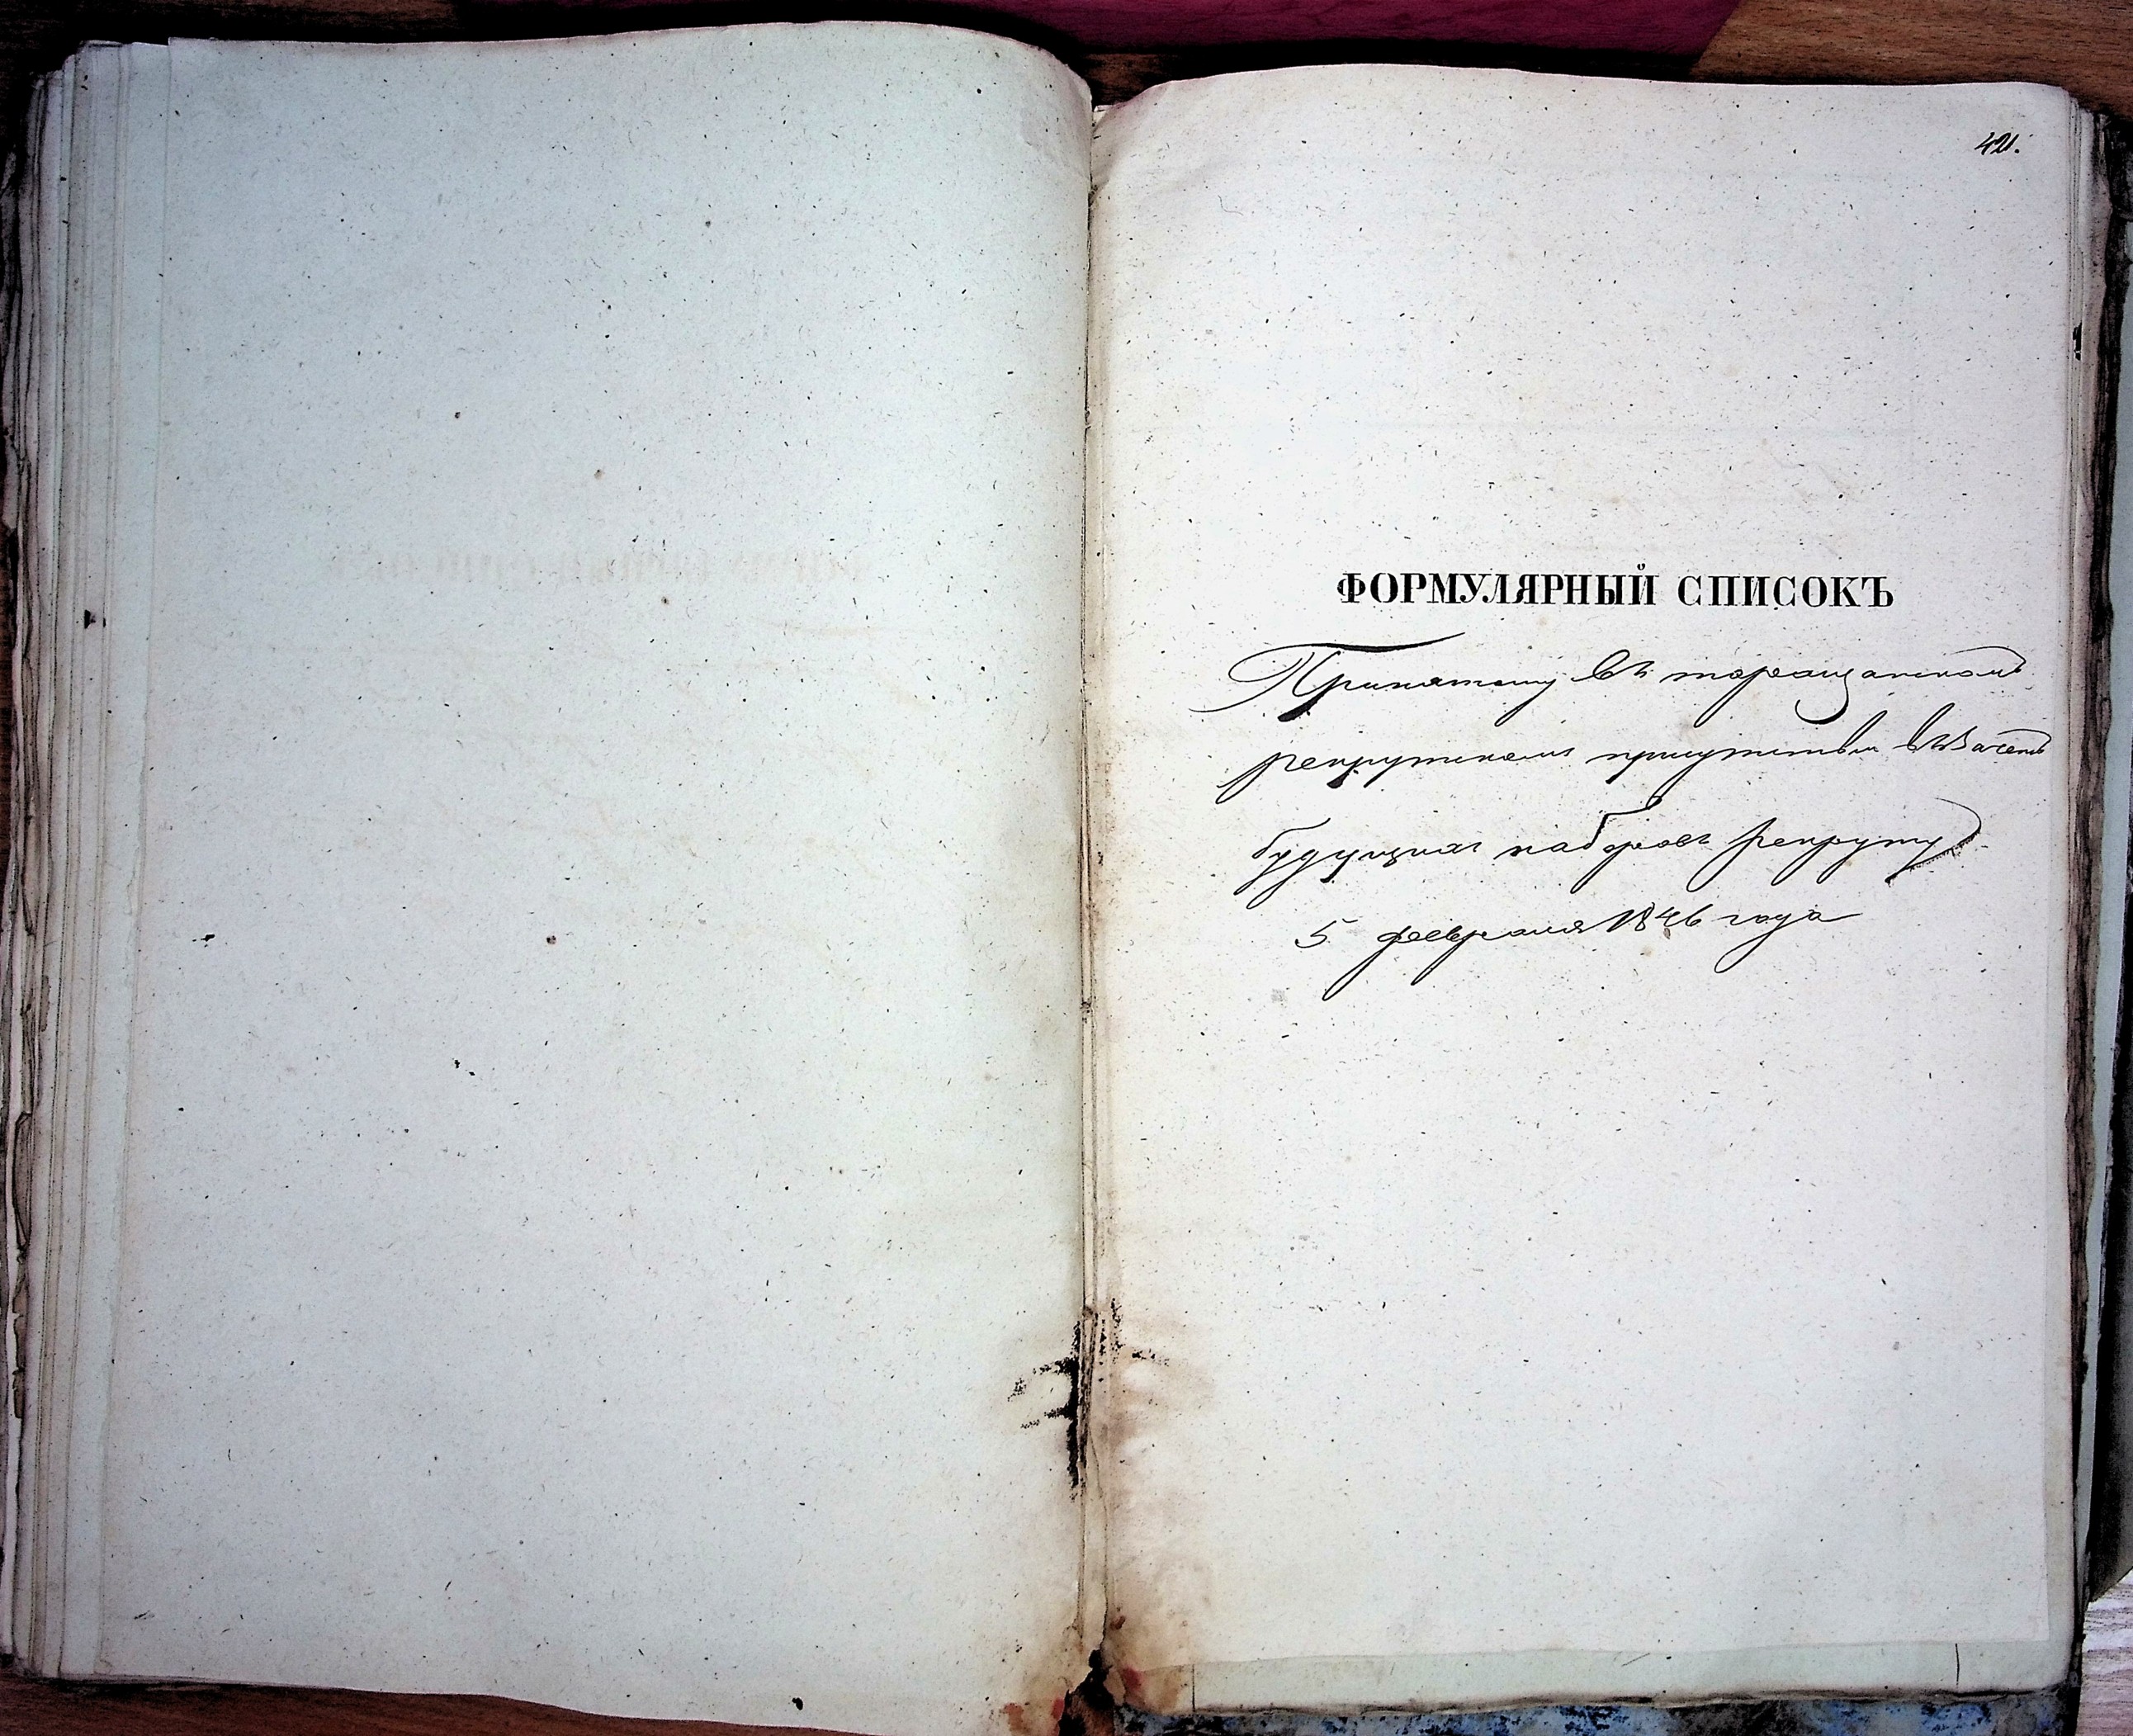 421.
ФОРМУЛЯРНЫЙ СПИСОКЪ
Принятому въ таращанскомъ
рекрутскомъ присутствіи въ Зачетъ
будущихъ наборовъ рекруту
5 февраля 1846 года